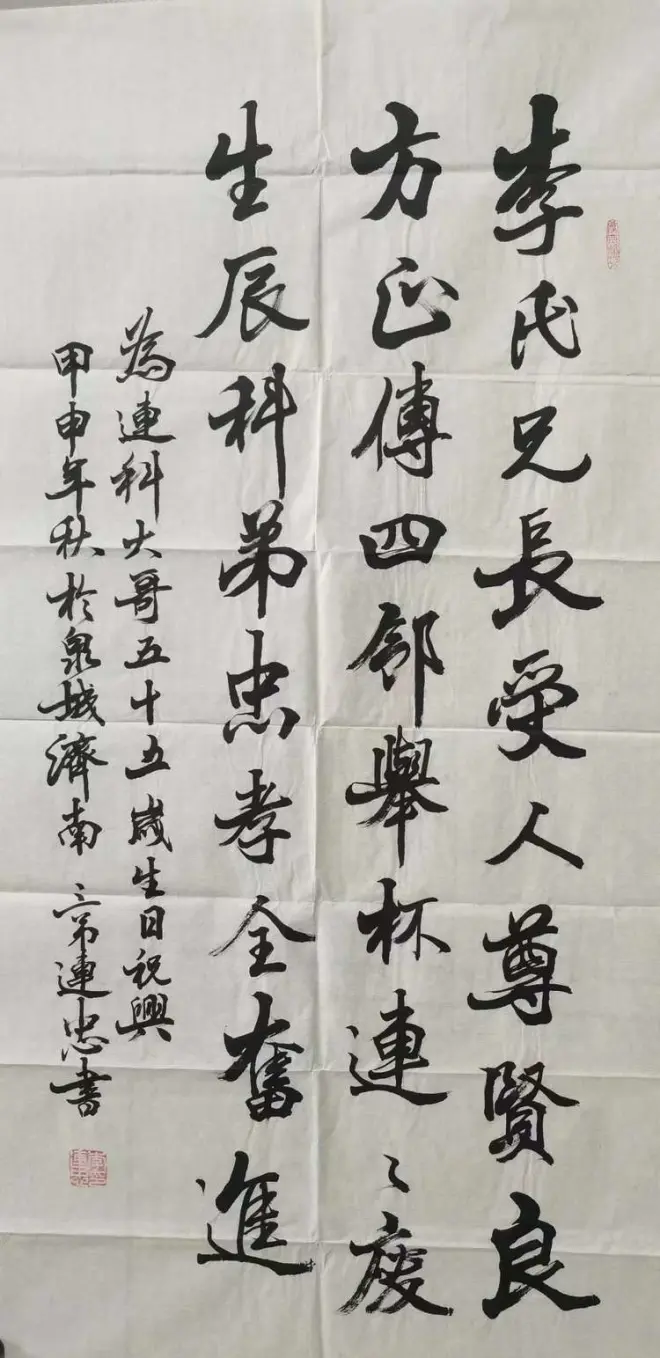 李氏兄長受人尊賢良
方正傳四鄰舉杯連〻慶
生辰科弟忠孝全奮進
為連科大哥五十五歲生日祝興
甲申年秋於泉城濟南 三弟連忠書